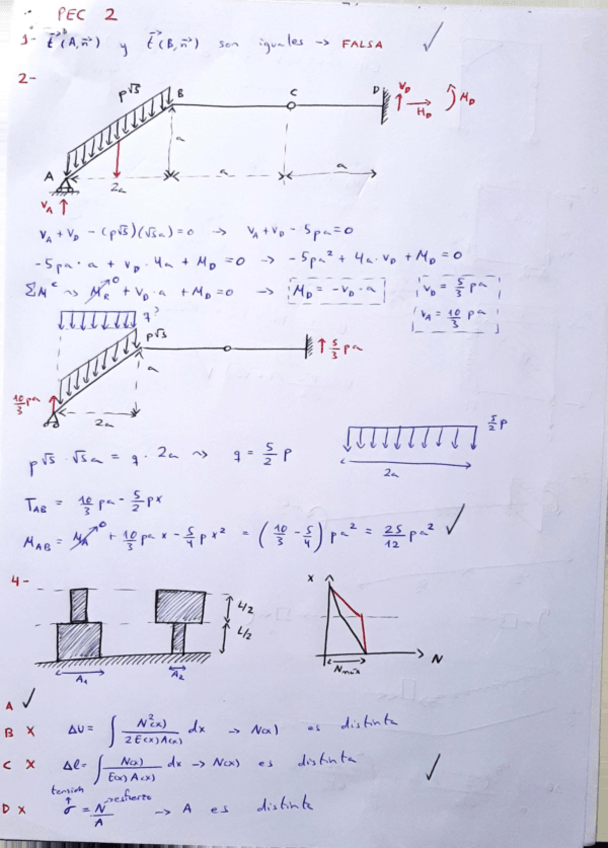 PEC 2
1- t⃗(A,n⃗) y t⃗(B,n⃗) son iguales → FALSA ✓
2-
p√5 B C D V_D H_D M_D
a
A 2a a a
V_A
V_A + V_D - (p√5)(√5a) = 0 → V_A + V_D - 5pa = 0
-5pa · a + V_D · 4a + M_D = 0 → -5pa² + 4a · V_D + M_D = 0
ΣM^C ⇝ M_R⁰ + V_D · a + M_D = 0 → M_D = -V_D · a V_D = 5/3 pa
V_A = 10/3 pa
q?
p√5 5/3 pa
a
10/3 pa 2a
p√5 · √5a = q · 2a ⇝ q = 5/2 p 5/2 p
2a
T_AB = 10/3 pa - 5/2 px
M_AB = M_A⁰ + 10/3 pa x - 5/4 p x² = (10/3 - 5/4) pa² = 25/12 pa² ✓
4-
L/2 X
L/2
A₁ A₂ Nmáx N
A ✓
B X ΔU = ∫ N²(x) / 2E(x)A(x) dx → N(x) es distinta
C X Δl = ∫ N(x) / E(x)A(x) dx → N(x) es distinta ✓
tensión esfuerzo
D X σ = N/A → A es distinta